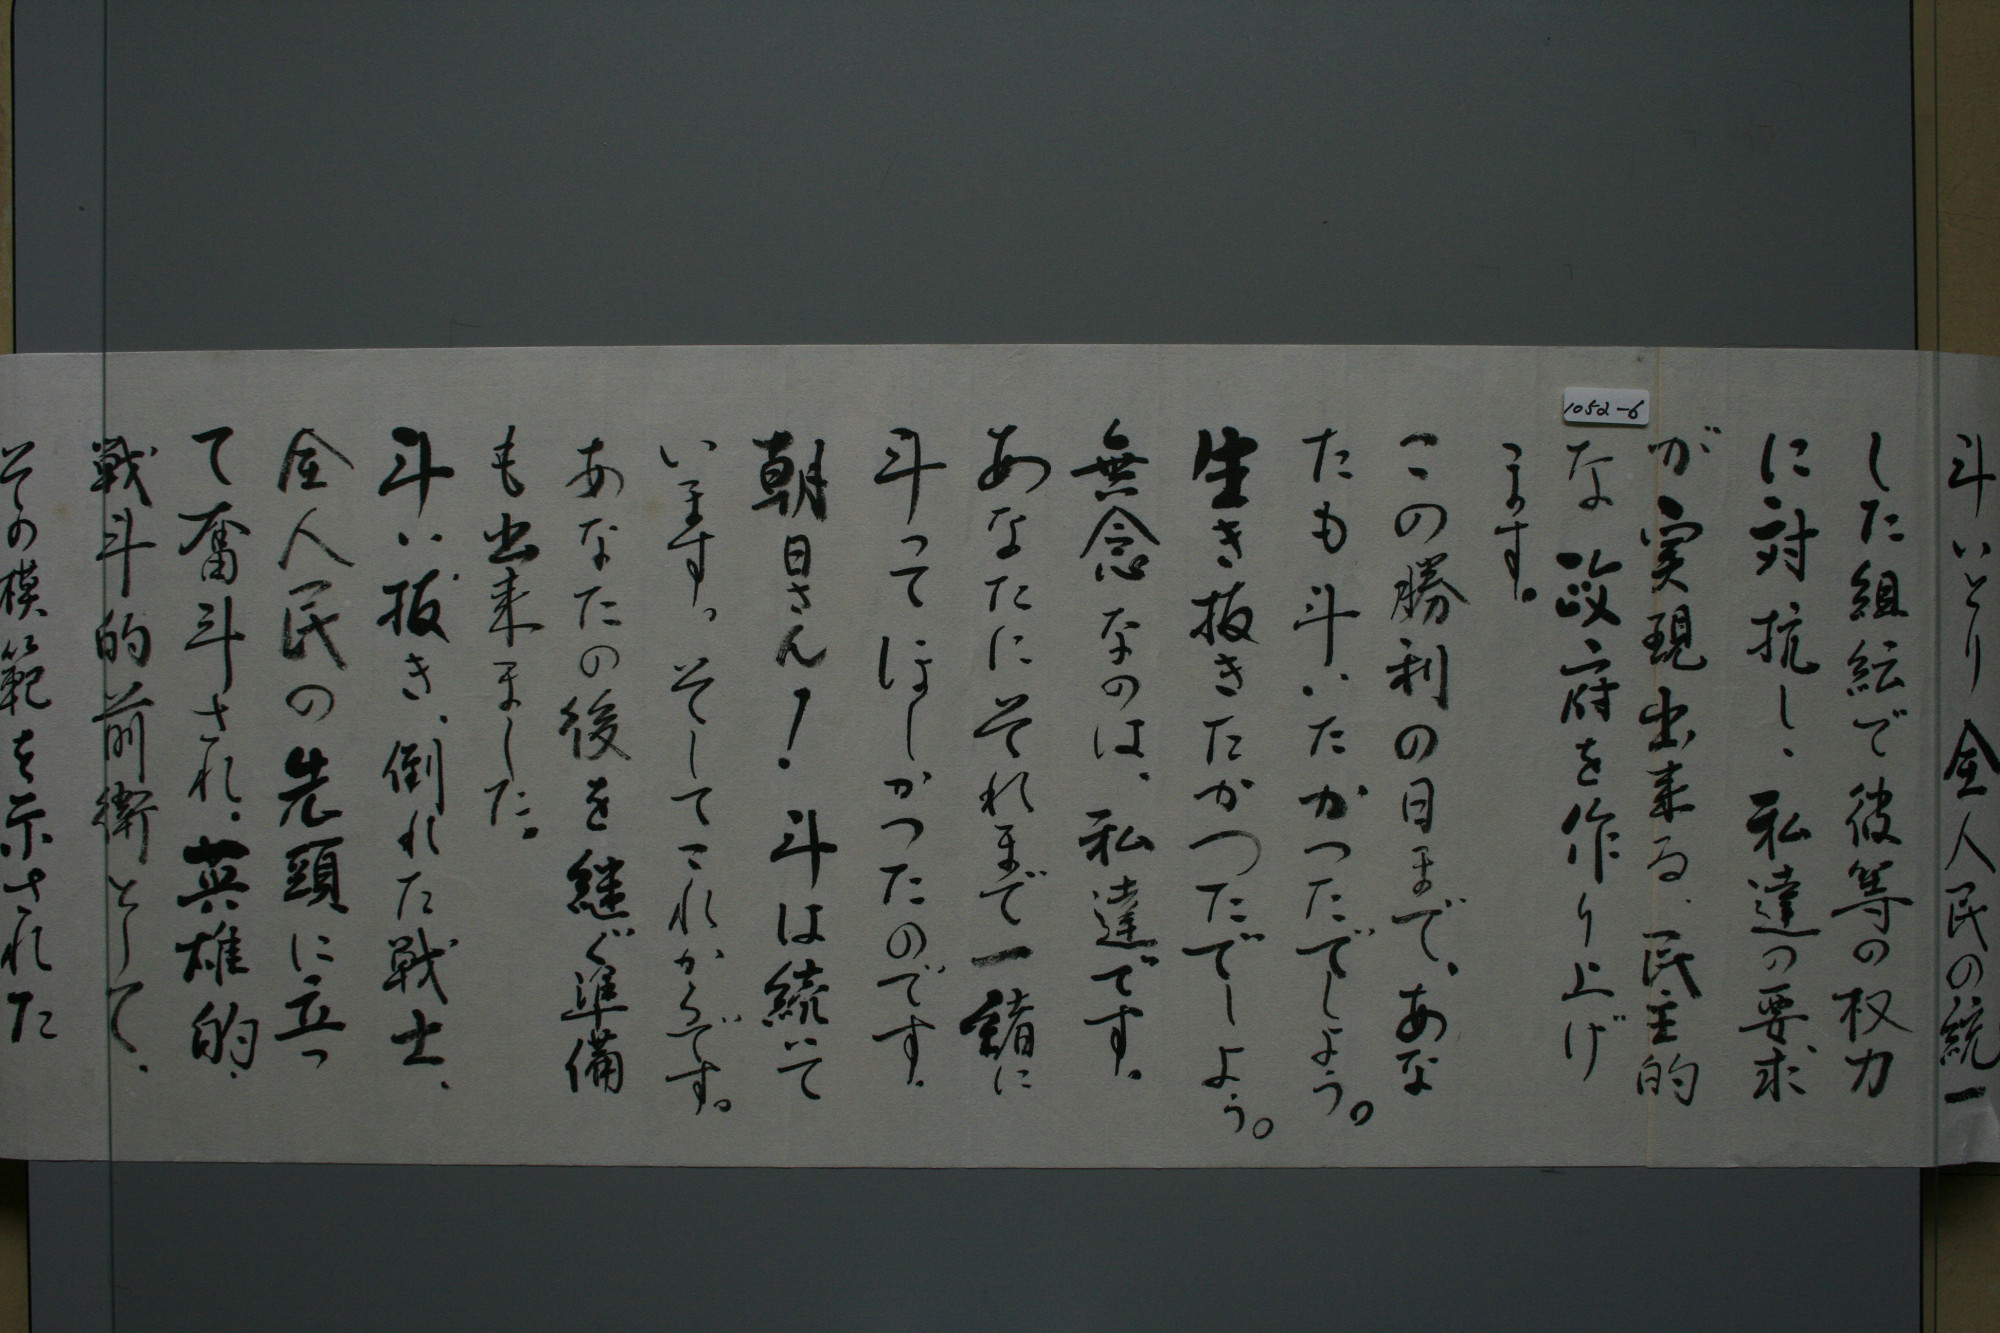 斗いとり全人民の統一
した組紜で彼等の权力
に対抗し、私達の要求
が実現出来る、民主的
な政府を作り上げ
ます。
1052-6
この勝利の日まで、あな
たも斗いたかったでしょう。
生き抜きたかつたでしよう。
無念なのは、私達です。
あなたにそれまで一緒に
斗ってほしかつたのです。
朝日さん！斗は続いて
います。そしてこれからです。
あなたの後を継ぐ準備
も出来ました。
斗い抜き、倒れた戦士、
全人民の先頭に立っ
て奮斗され、英雄的、
戦斗的前衛として、
その模範を示された